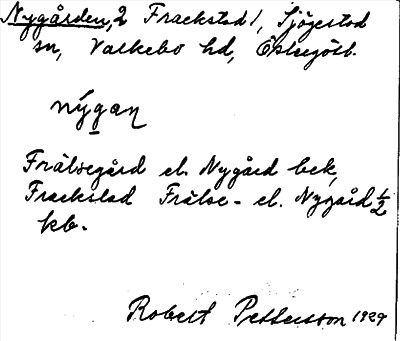 Nygården, 2 Frackstad 1, Sjögestad
sn, Valkebo hd, Östergötl.
nýgan
Frälsegård el. Nygård bek,
Frackstad Frälse- el. Nygård 1/2
kb.
Robert Pettersson 1929